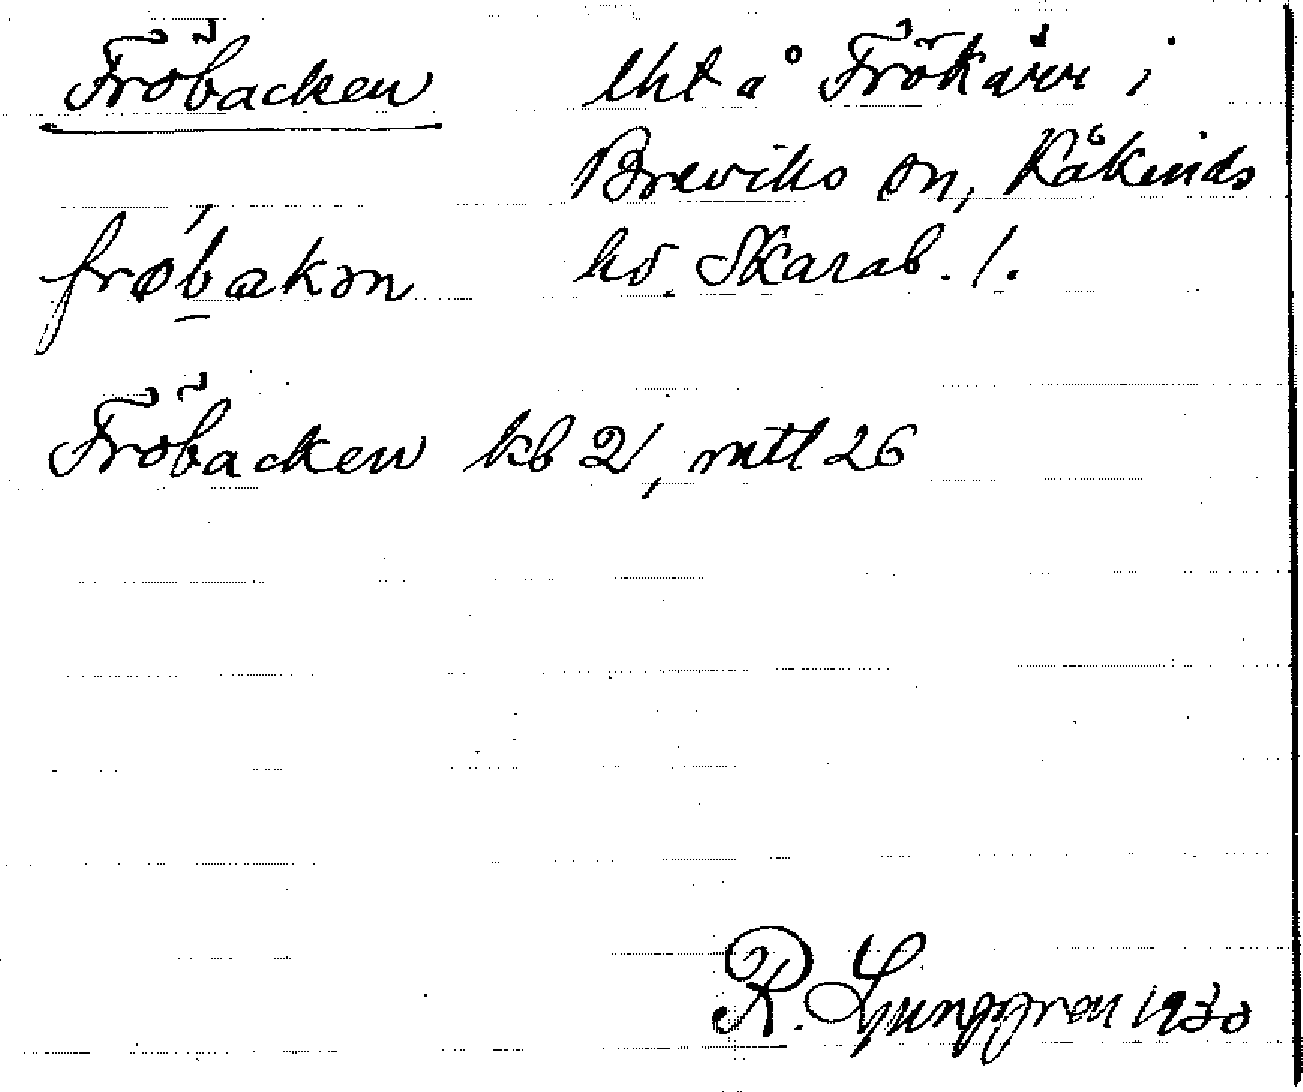 Fröbacken lht å Frökärr i
Breviks sn, Kåkinds
frøbakən hd. Skarab. l.
Fröbacken kb 21, mtl 26
R. Ljunggren 1930